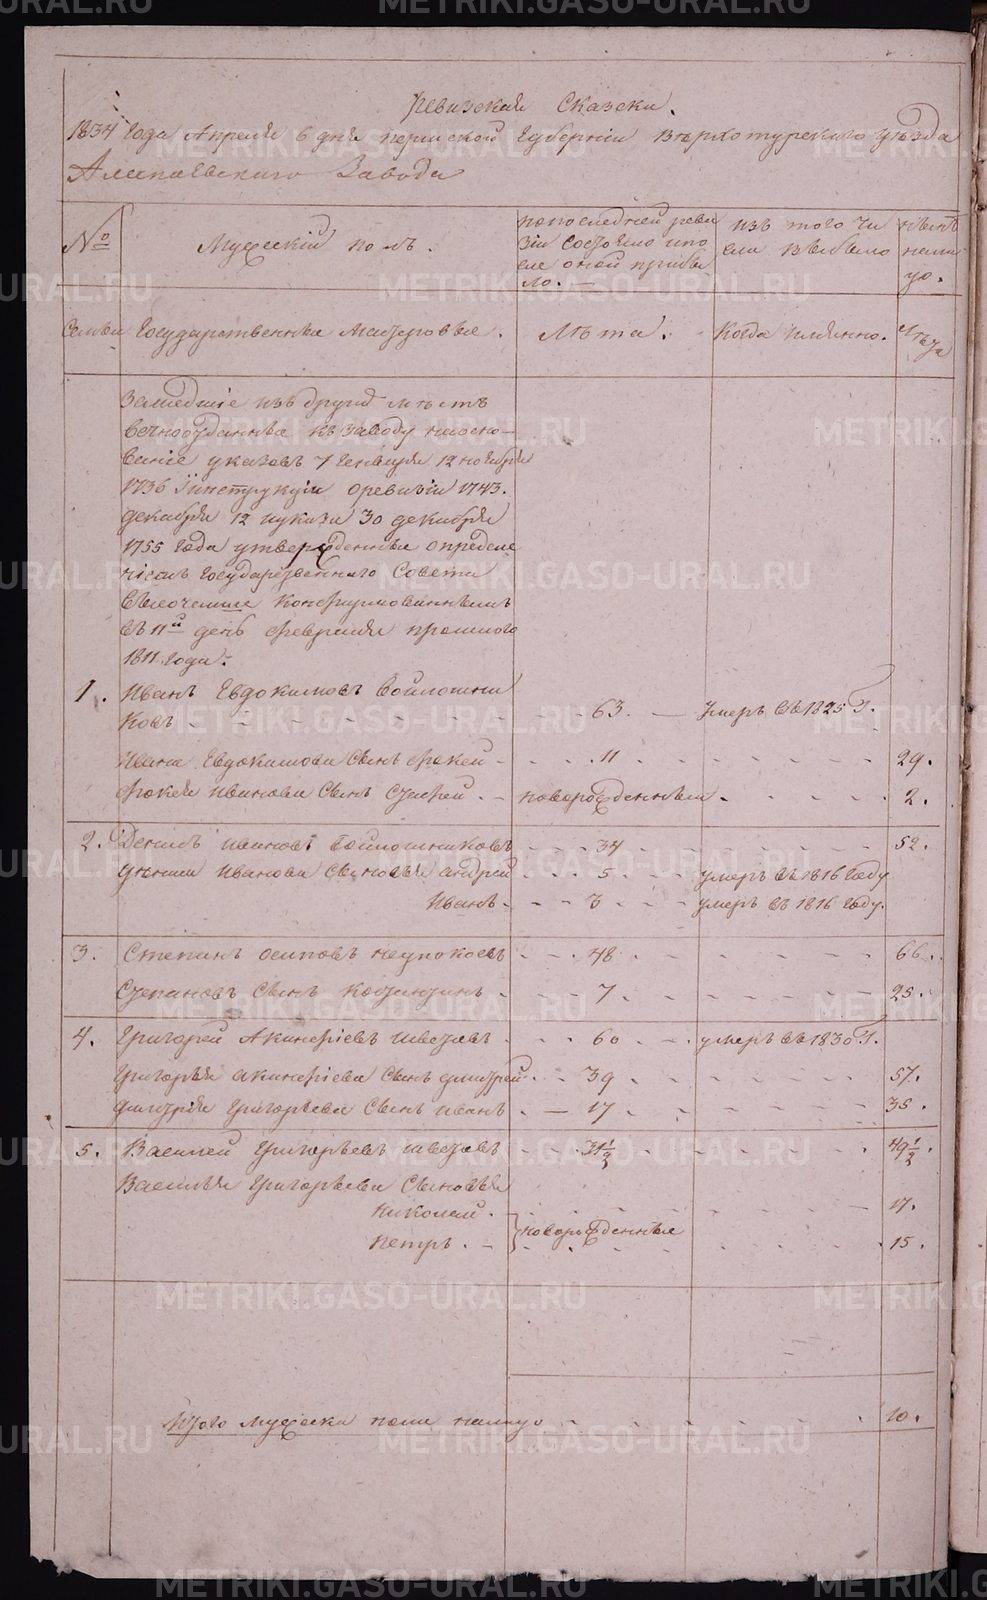 Ревизская Сказска.
1834 года Апреля 6 дня пермской Губернии Верхотурского уезда
Алапаевского Завода
№ Мужеский полъ. попоследней реви изъ того чи ныне
зіи состояло ипо сла выбыло нали
сле оной прибы цо.
ло. —
Семьи Государственные Мастеровые. Лѣта. Когда имянно. Лѣта
Зашедшіе изъ другихъ мѣстъ
вечноотданные къ заводу наосно-
ваніе указовъ 7 Генваря 12 ноября
1736 Інструкціи оревизіи 1743.
декабря 12 иуказа 30 декабря
1755 года утвержденные определе
ніемъ Государственнаго Совета
высочайше Конфирмованнымъ
въ 11й день февраля прошлого
1811 года.
1. Иванъ Евдокимовъ Войлошни
ковъ - - - 63. — умеръ въ 1825 Г.
Ивана Евдокимова Сынъ Фокей - - - 11 - - - 29.
Фокея Иванова Сынъ Сергей. - новорожденный. - - - 2.
2. Денисъ Ивановъ Войлошниковъ - - - 34 - - - 52.
Дениса Иванова Сыновья андрей - - - 5 - - умеръ въ 1816 году
Иванъ - - - 3 - - умеръ въ 1816 году.
3. Степанъ осиповъ неупокоевъ - - - 48 - - - 66.
Степановъ Сынъ Костянтинъ - - - 7. - - - 25.
4. Григорей Акинфіевъ Шветовъ - - - 60 - - умеръ въ 1830 Г.
Григорья акинфіева Сынъ дмитрей - - - 39 - - - 57.
дмитрія Григорьева Сынъ иванъ - — 17 - - - 35.
5. Василей Григорьевъ шветовъ - - - 31½ - - - 49½.
Василья Григорьева Сыновья
Николай. - - - 17.
Петръ. - новорожденные - - - 15.
Итого мужеска пола налицо - - - 10.